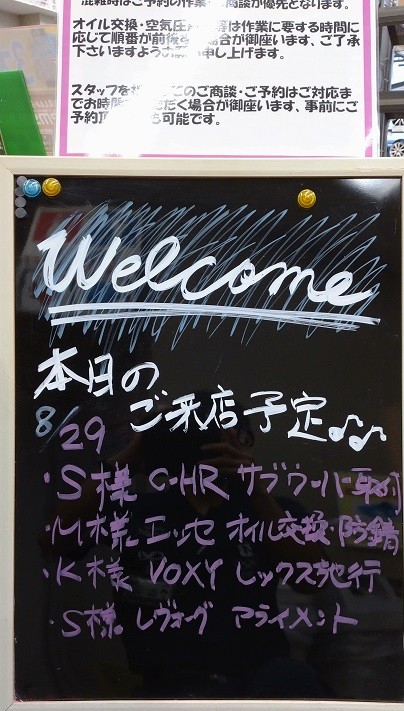 混雑時はご予約の作業 商談が優先となります。
オイル交換・空気圧 等は作業に要する時間に
応じて順番が前後 場合が御座います、ご了承
下さいますようお 申し上げます。
スタッフを のご商談・ご予約はご対応ま
でお時間 だく場合が御座います、事前にご
予約頂 も可能です。
Welcome
本日の
8/29 ご来店予定♪♫
・S様 C-HR サブウーハー取付
・M様 エッセ オイル交換・防錆
・K様 VOXY レックス施行
・S様 レヴォーグ アライメント